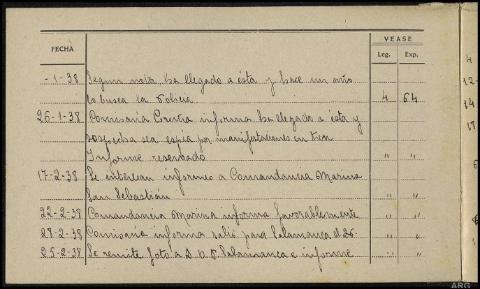 VEASE
FECHA Leg. Exp.
-1-38 Segun nota ha llegado a ésta y hace un año
la busca la Policia 4 64
26-1-38 Comisaria informa ha llegado a ésta y
sospecha sea espia por manifestaciones en tren
Informe reservado " "
17-2-38 Se interesan informes a Comandancia Marina
San Sebastián " "
22-2-38 Comandancia Marina informa favorablemente " "
28-2-38 Comisaria informa salió para Salamanca el 26- " "
25-2-38 Se remite foto a Salamanca e informe " "
ARG